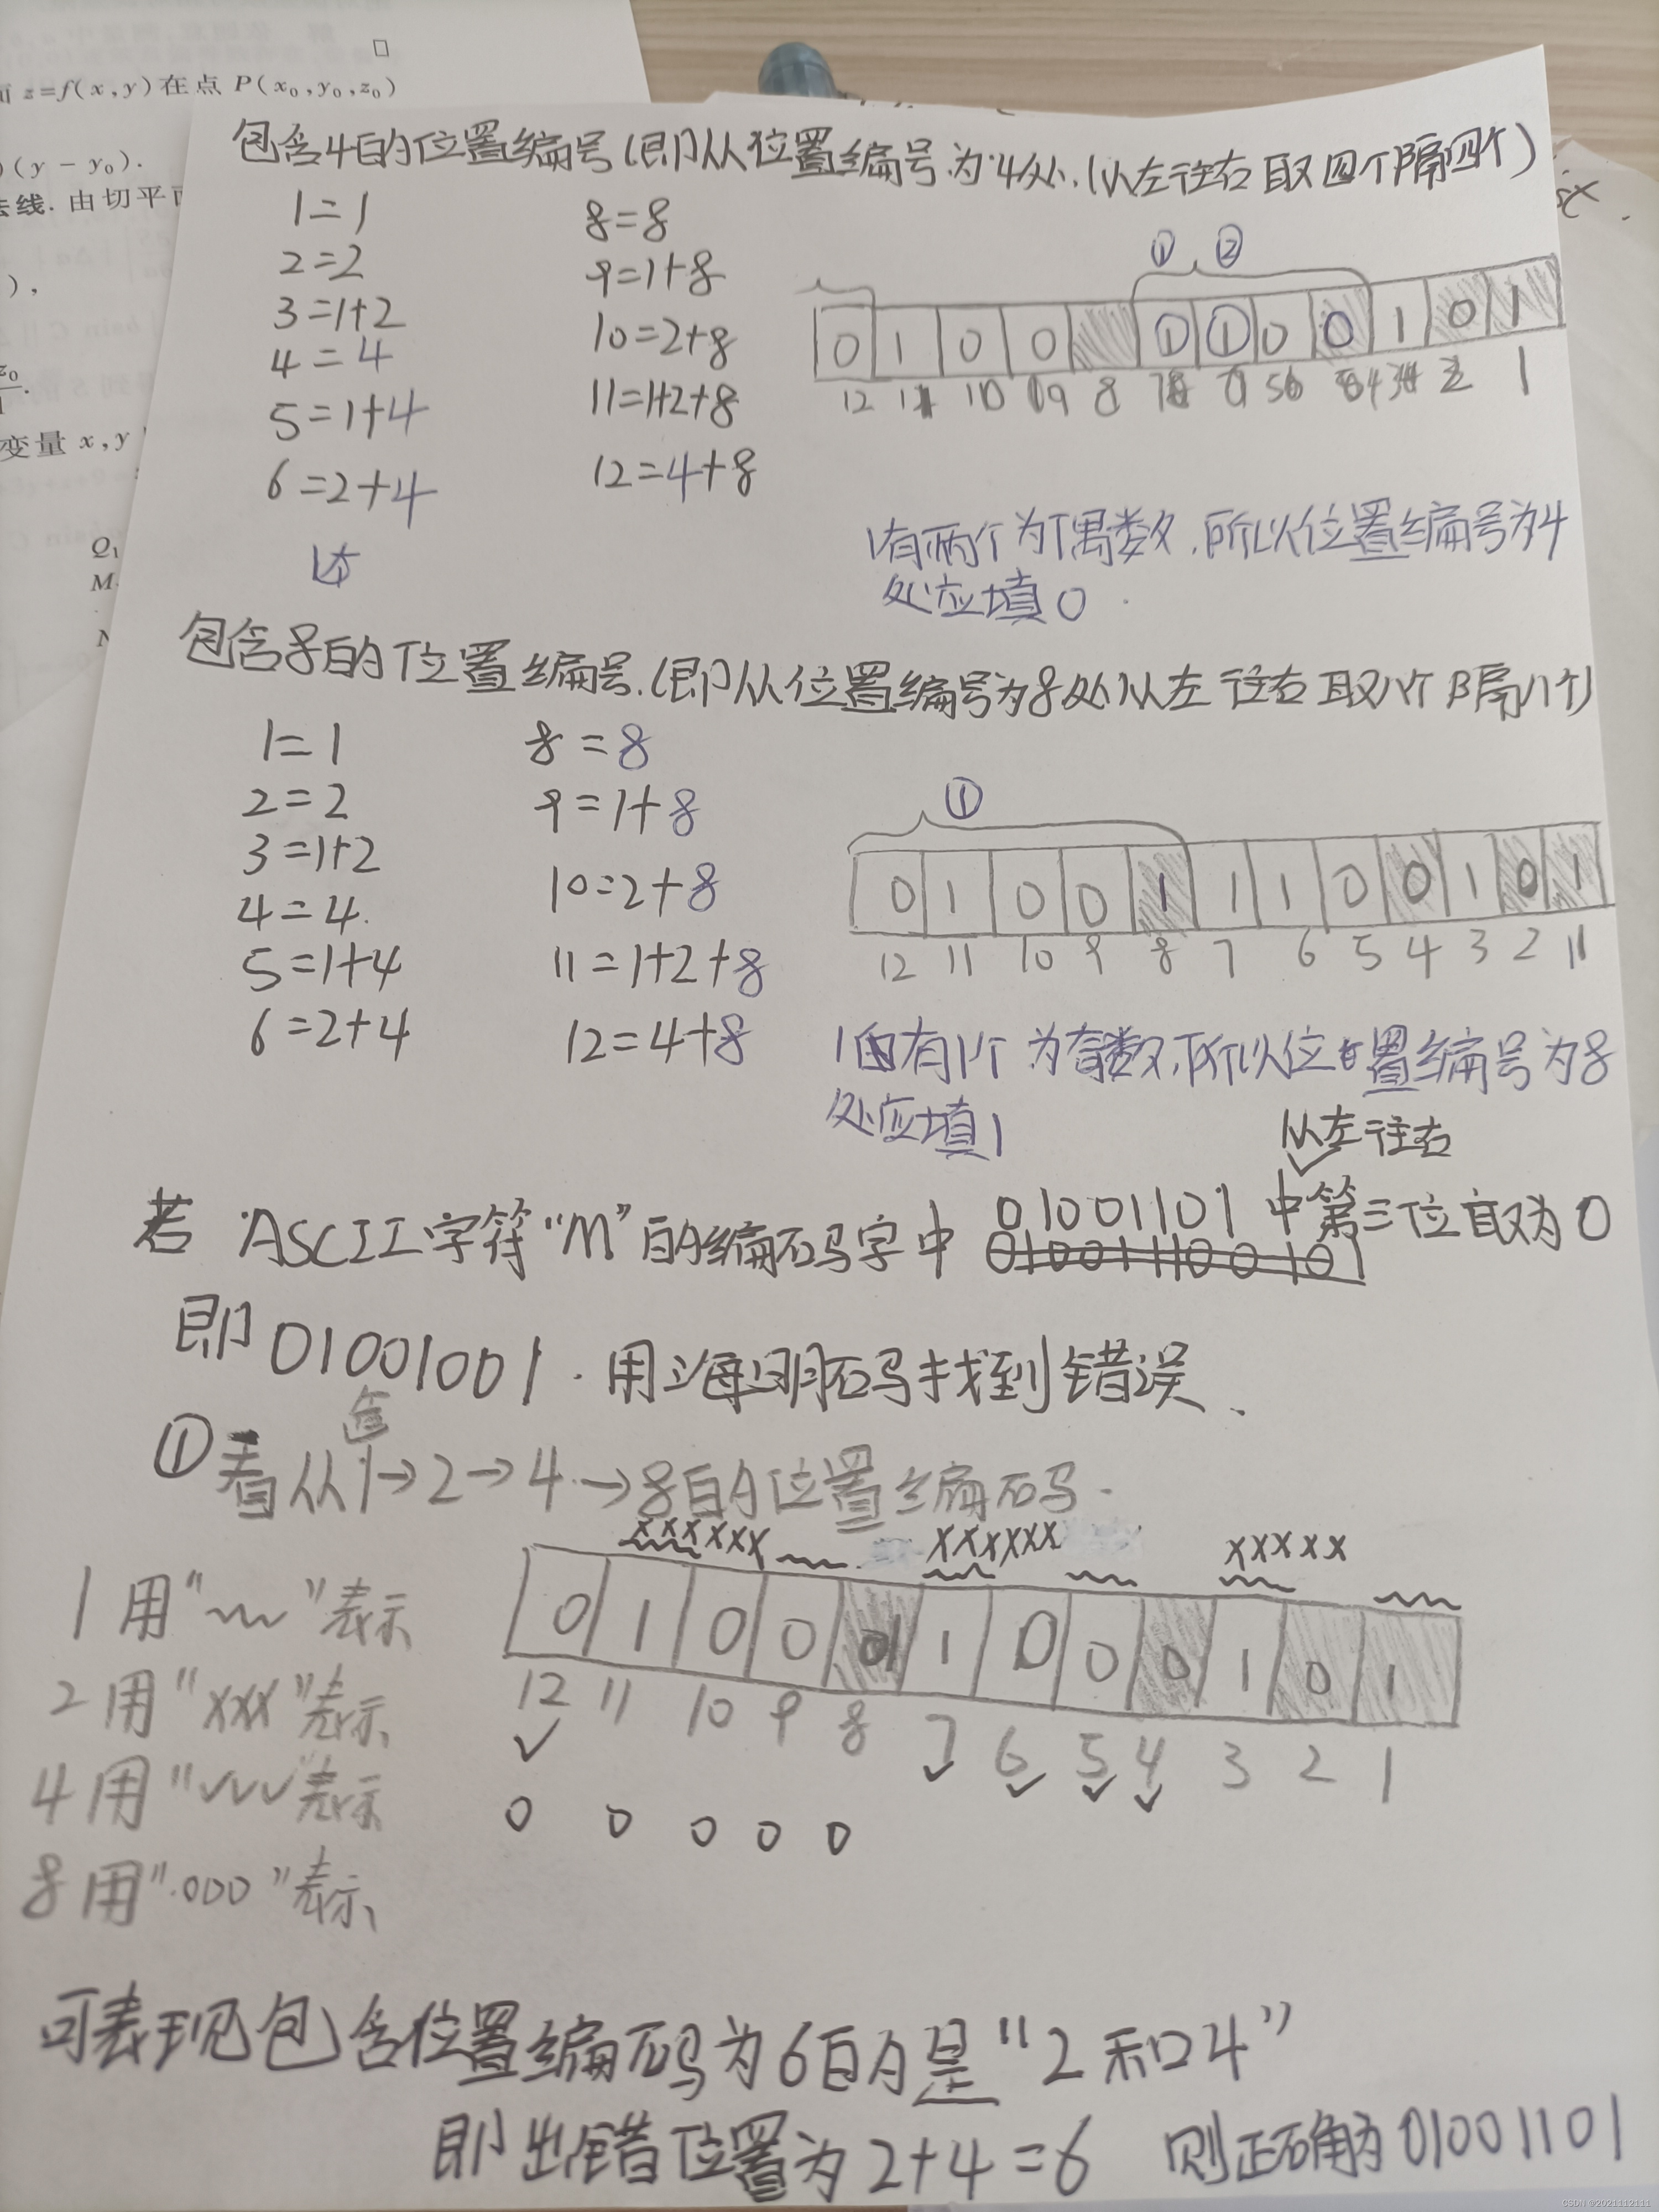 □
z=f(x,y)在点 P(x₀,y₀,z₀)
)(y-y₀).
法线.由切平面
),
变量 x,y
Q₁
M
包含4的位置编号(即从位置编号为4处.(从左往右取四个隔四个)
1=1 8=8
2=2 9=1+8
3=1+2 10=2+8
4=4 11=1+2+8
5=1+4 12=4+8
6=2+4
① ②
0 1 0 0 ① ① 0 0 1 0 1
12 11 10 9 8 7 5 4 3 2 1
1有两个为偶数.所以位置编号为4
处应填0.
包含8的位置编号.(即从位置编号为8处从左往右取八个隔八个)
1=1 8=8
2=2 9=1+8
3=1+2 10=2+8
4=4. 11=1+2+8
5=1+4 12=4+8
6=2+4
①
0 1 0 0 1 1 1 0 0 1 0 1
12 11 10 9 8 7 6 5 4 3 2 1
1有1个为奇数,所以位置编号为8
处应填1
从左往右
若ASCII字符“M”的编码字中 01001101 中第三位取为0
010011100101
即01001001.用海明码找到错误.
①看从1→2→4→8的位置编码.
xxxxxx xxxxxx xxxxx
1用“~~”表示
0 1 0 0 1 1 0 0 0 1 0 1
12 11 10 9 8 7 6 5 4 3 2 1
2用“xxx”表示
✓ ✓ ✓ ✓ ✓
4用“✓✓✓”表示
0 0 0 0 0
8用“.000”表示
可表现包含位置编码为6的是“2和4”
即出错位置为2+4=6 则正确为01001101
CSDN @2021112111